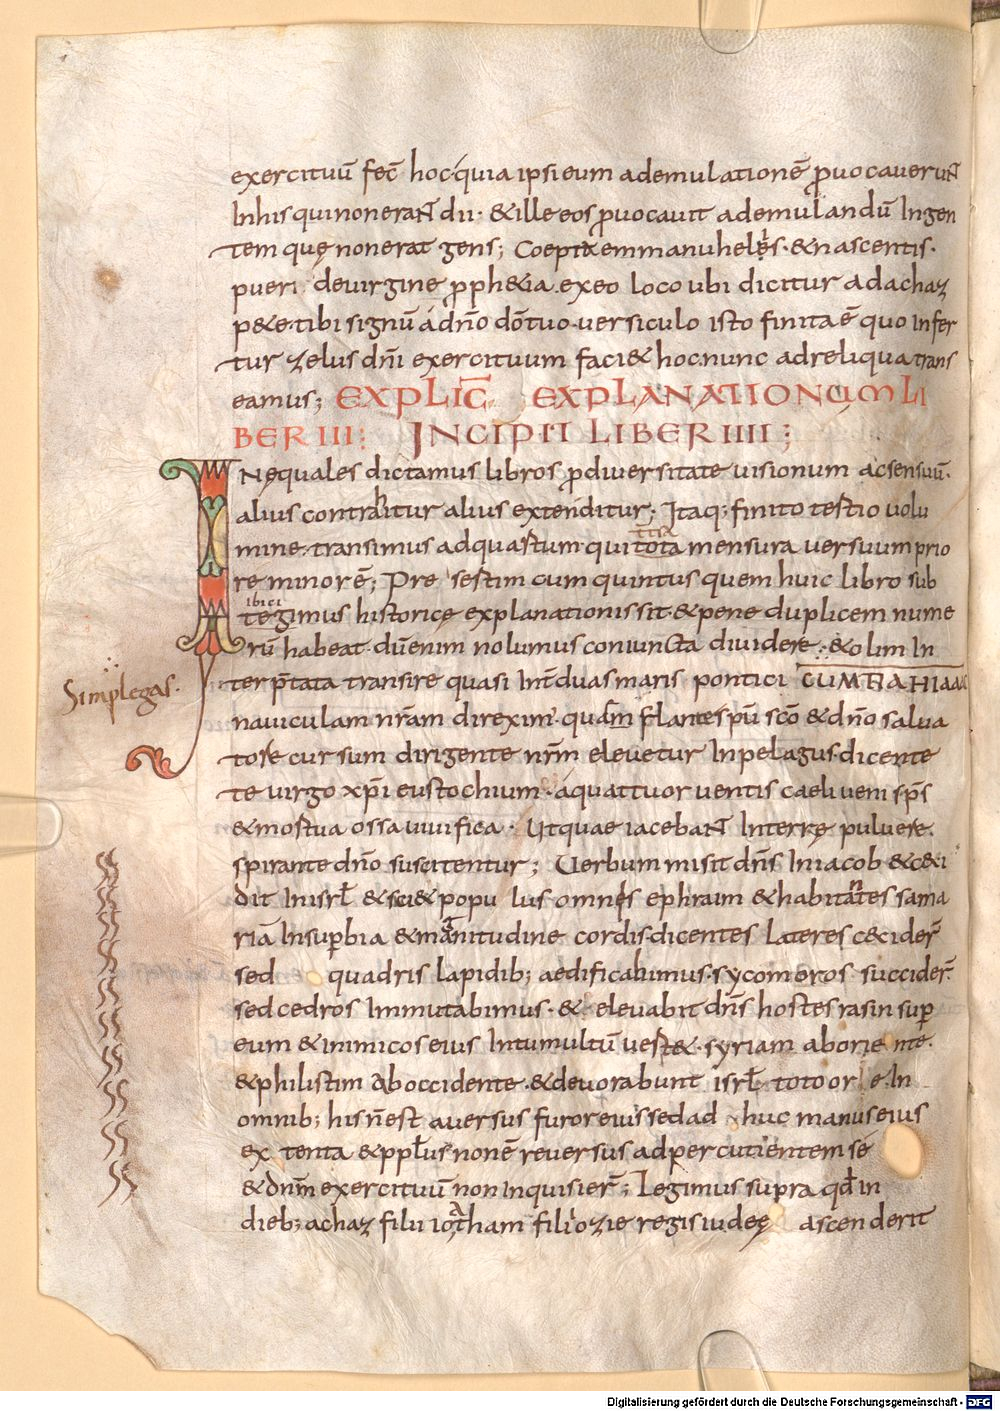 exercituū fec̄ hoc quia ipsi eum ad emulationē ꝓuocauerunt
In his qui non erant dii · & ille eos ꝓuocauit ad emulandū In gen
tem quę non erat gens; Coepta emmanuhelis · & nascentis ·
pueri de uirgine proph&ia · ex eo loco ubi dicitur ad achaz
p&e · tibi signū á dn̄o dō tuo · uersiculo isto finita ē quo infer
tur zelus dn̄i exercituum faci& hoc nunc ad reliqua trans
eamus; EXPLIC̄ EXPLANATIONUM LI
BER III: INCIPIT LIBER IIII;
INęquales dictamus libros ꝓ diuersitate uisionum ac sensuū ·
alius contrahitur alius extenditur; Itaq; finito tertio uolu
mine · transimus ad quartum · qui tota mensura uersuum prio
re minor ē; Pre sertim cum quintus quem huic libro sub
tegimus historicę explanationis sit · & pene duplicem nume
rū habeat · dū enim nolumus coniuncta diuidere · & olim In
terp̄tata transire quasi Int̄ duas maris pontici CUM
Simplegas ·
nauiculam nr̄am direxim · quam flante sp̄u sc̄o & dn̄o salua
tore cursum dirigente nr̄m eleuetur In pelagus · dicente
te uirgo xp̄i eustochium · a quattuor uentis caeli ueni sp̄s
& mortua ossa uiuifica · Ut quae iacebant In terrę puluere ·
spirante dn̄o suscitentur; Uerbum misit dn̄s In iacob & c&i
dit In isrł & sci& popu lus omnis ephraim & habitantes sama
riā In suꝑbia & magnitudine cordis · dicentes Lateres c&ider̄
sed quadris lapidib; aedificabimus · sycomoros succider̄ ·
sed cedros Immutabimus · & eleuabit dn̄s hostes rasin suꝑ
eum & inimicos eius In tumultū uert& · syriam ab orie nte ·
& philistim Ab occidente · & deuorabunt isrł toto or e · In
omnib; his n̄ est auersus furor eius sed ad huc manus eius
ex tenta & ppłus non ē reuersus ad percutientem sé
& dn̄m exercituū non Inquisier̄; Legimus supra qđ in
dieb; achaz filii ioatham filii ozie regis iudeę ascenderit